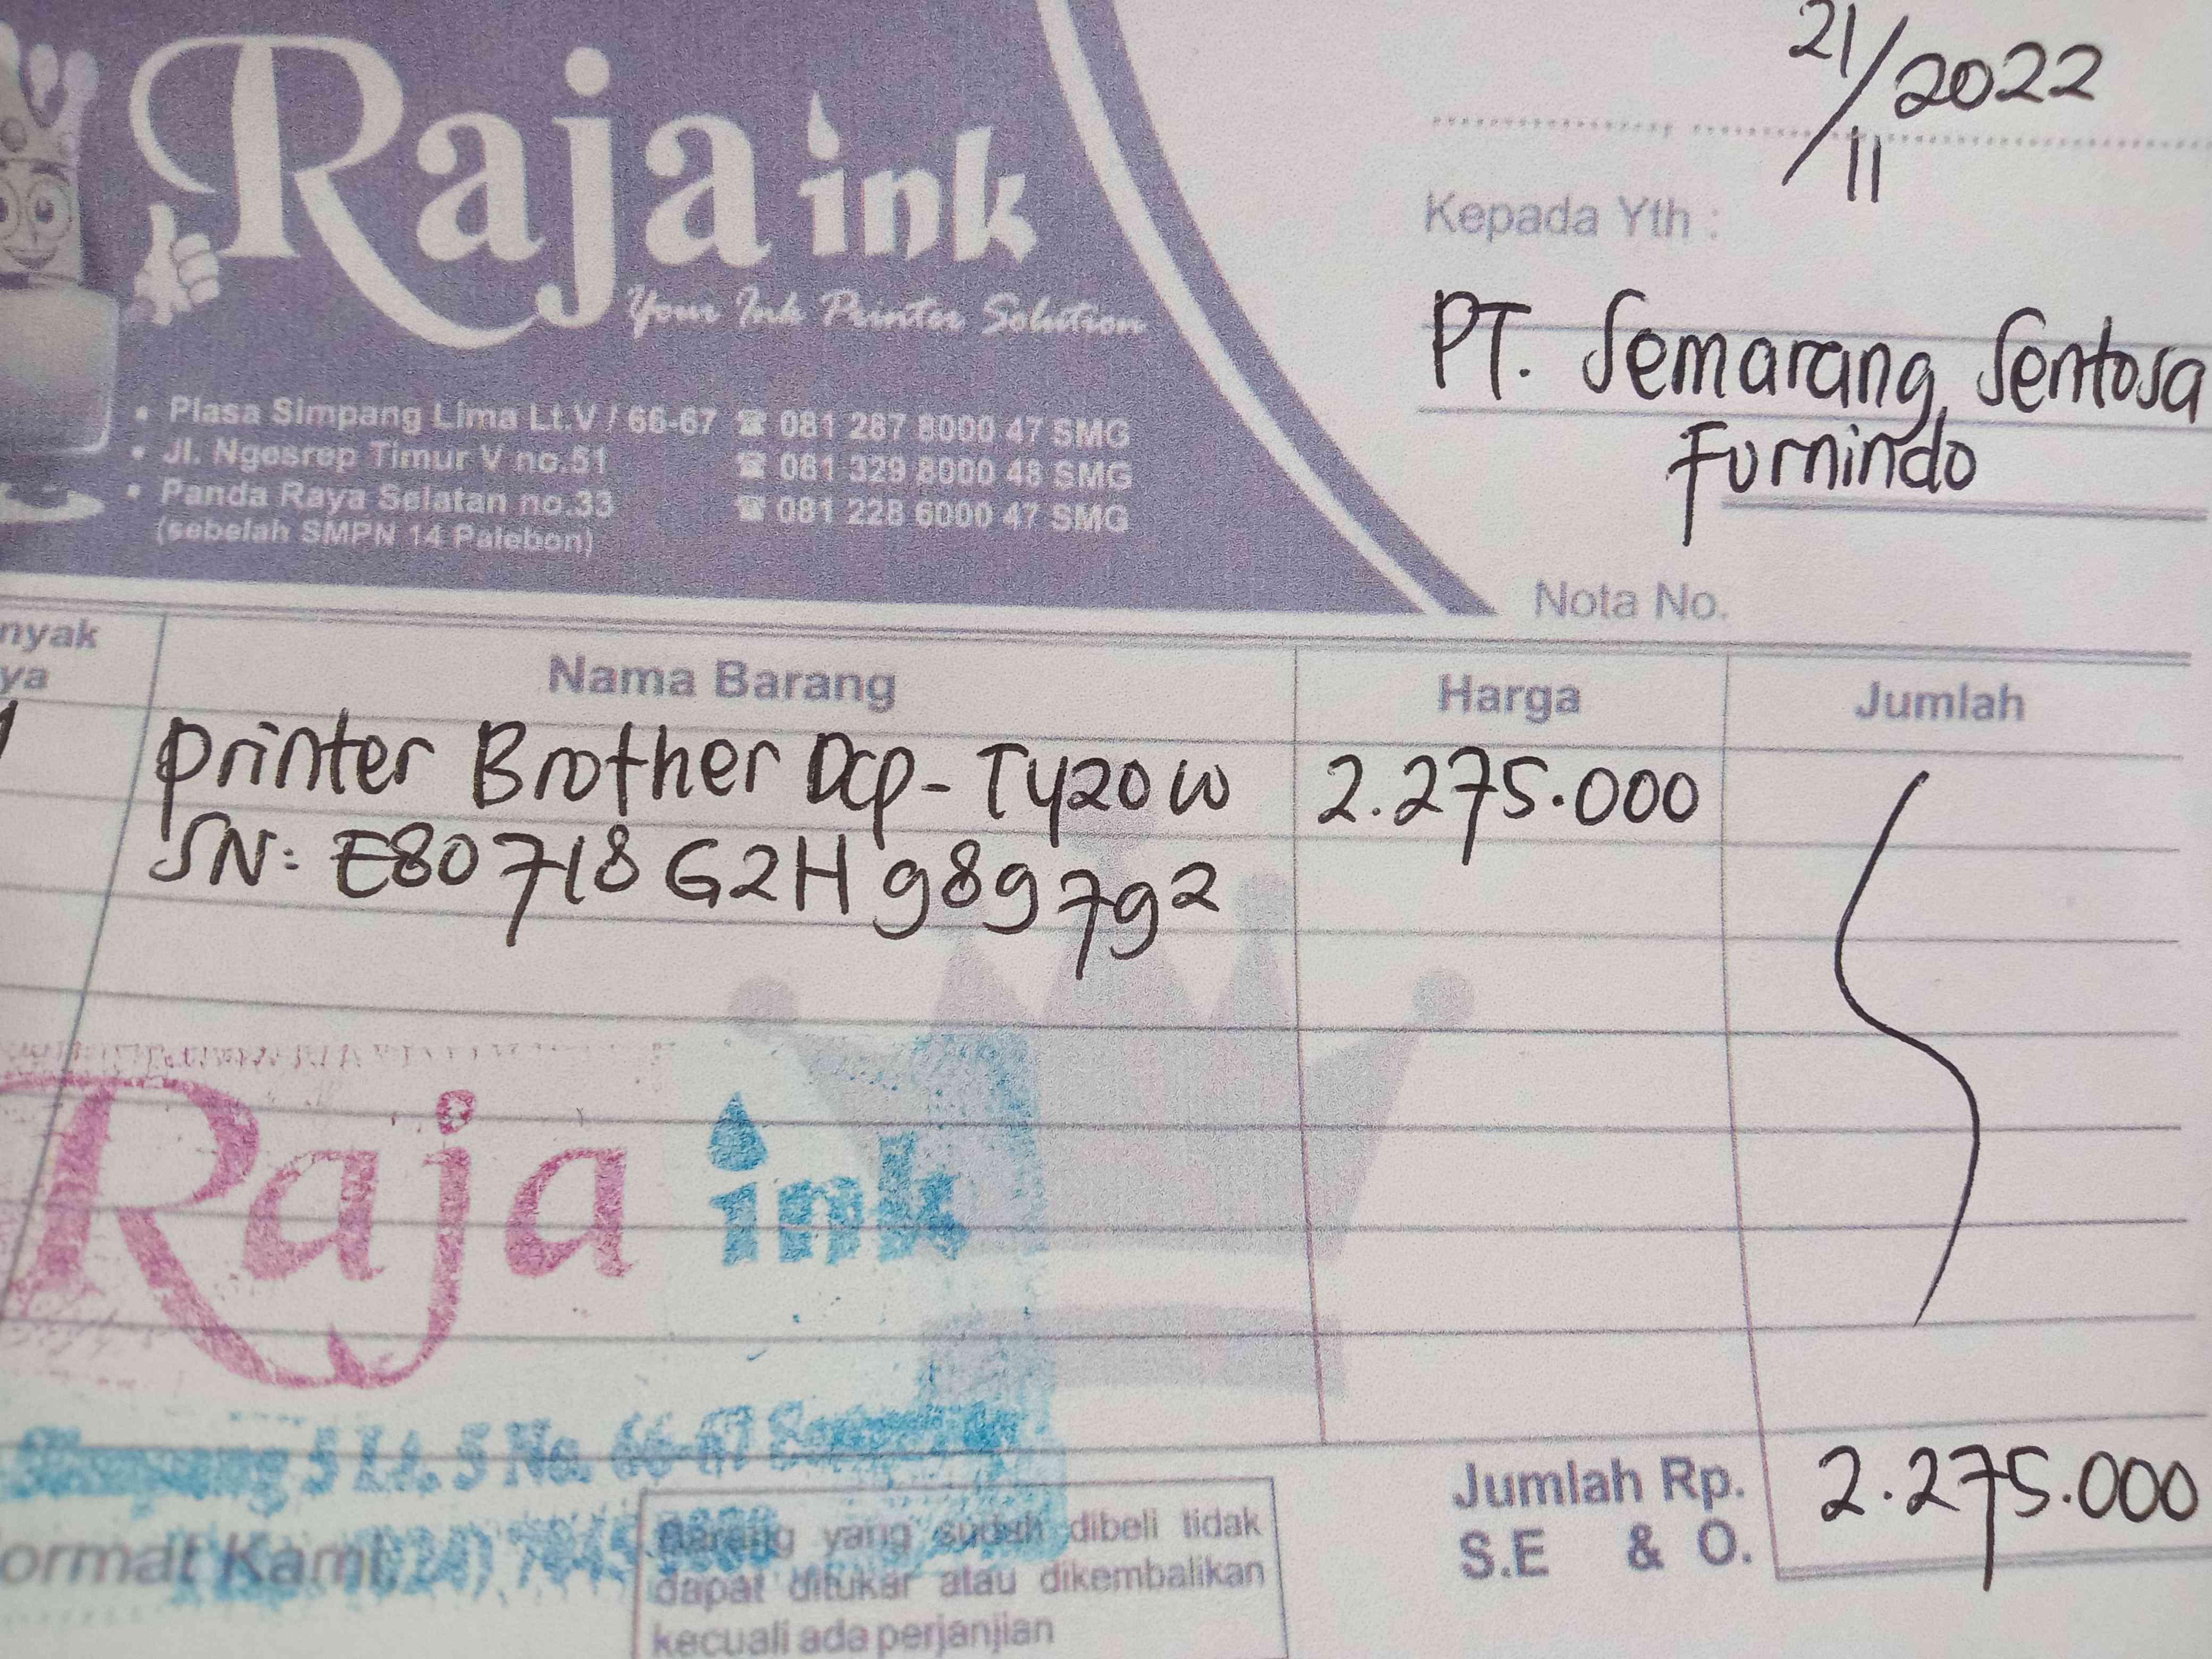 Raja ink
Your Ink Printer Solution
• Plasa Simpang Lima Lt.V / 66-67 ☎ 081 287 8000 47 SMG
• Jl. Ngesrep Timur V no.51 ☎ 081 329 8000 48 SMG
• Panda Raya Selatan no.33 ☎ 081 228 6000 47 SMG
(sebelah SMPN 14 Palebon)
21/11 2022
Kepada Yth :
PT. Semarang Sentosa
Furnindo
Nota No.
nyak
ya
Nama Barang Harga Jumlah
1 printer Brother Dcp-T420W 2.275.000
SN: E80718G2H989792
Raja ink
Simpang 5 Lt. 5 No. 66-67
ormat Kami,
Barang yang sudah dibeli tidak
dapat ditukar atau dikembalikan
kecuali ada perjanjian
Jumlah Rp. 2.275.000
S.E & O.